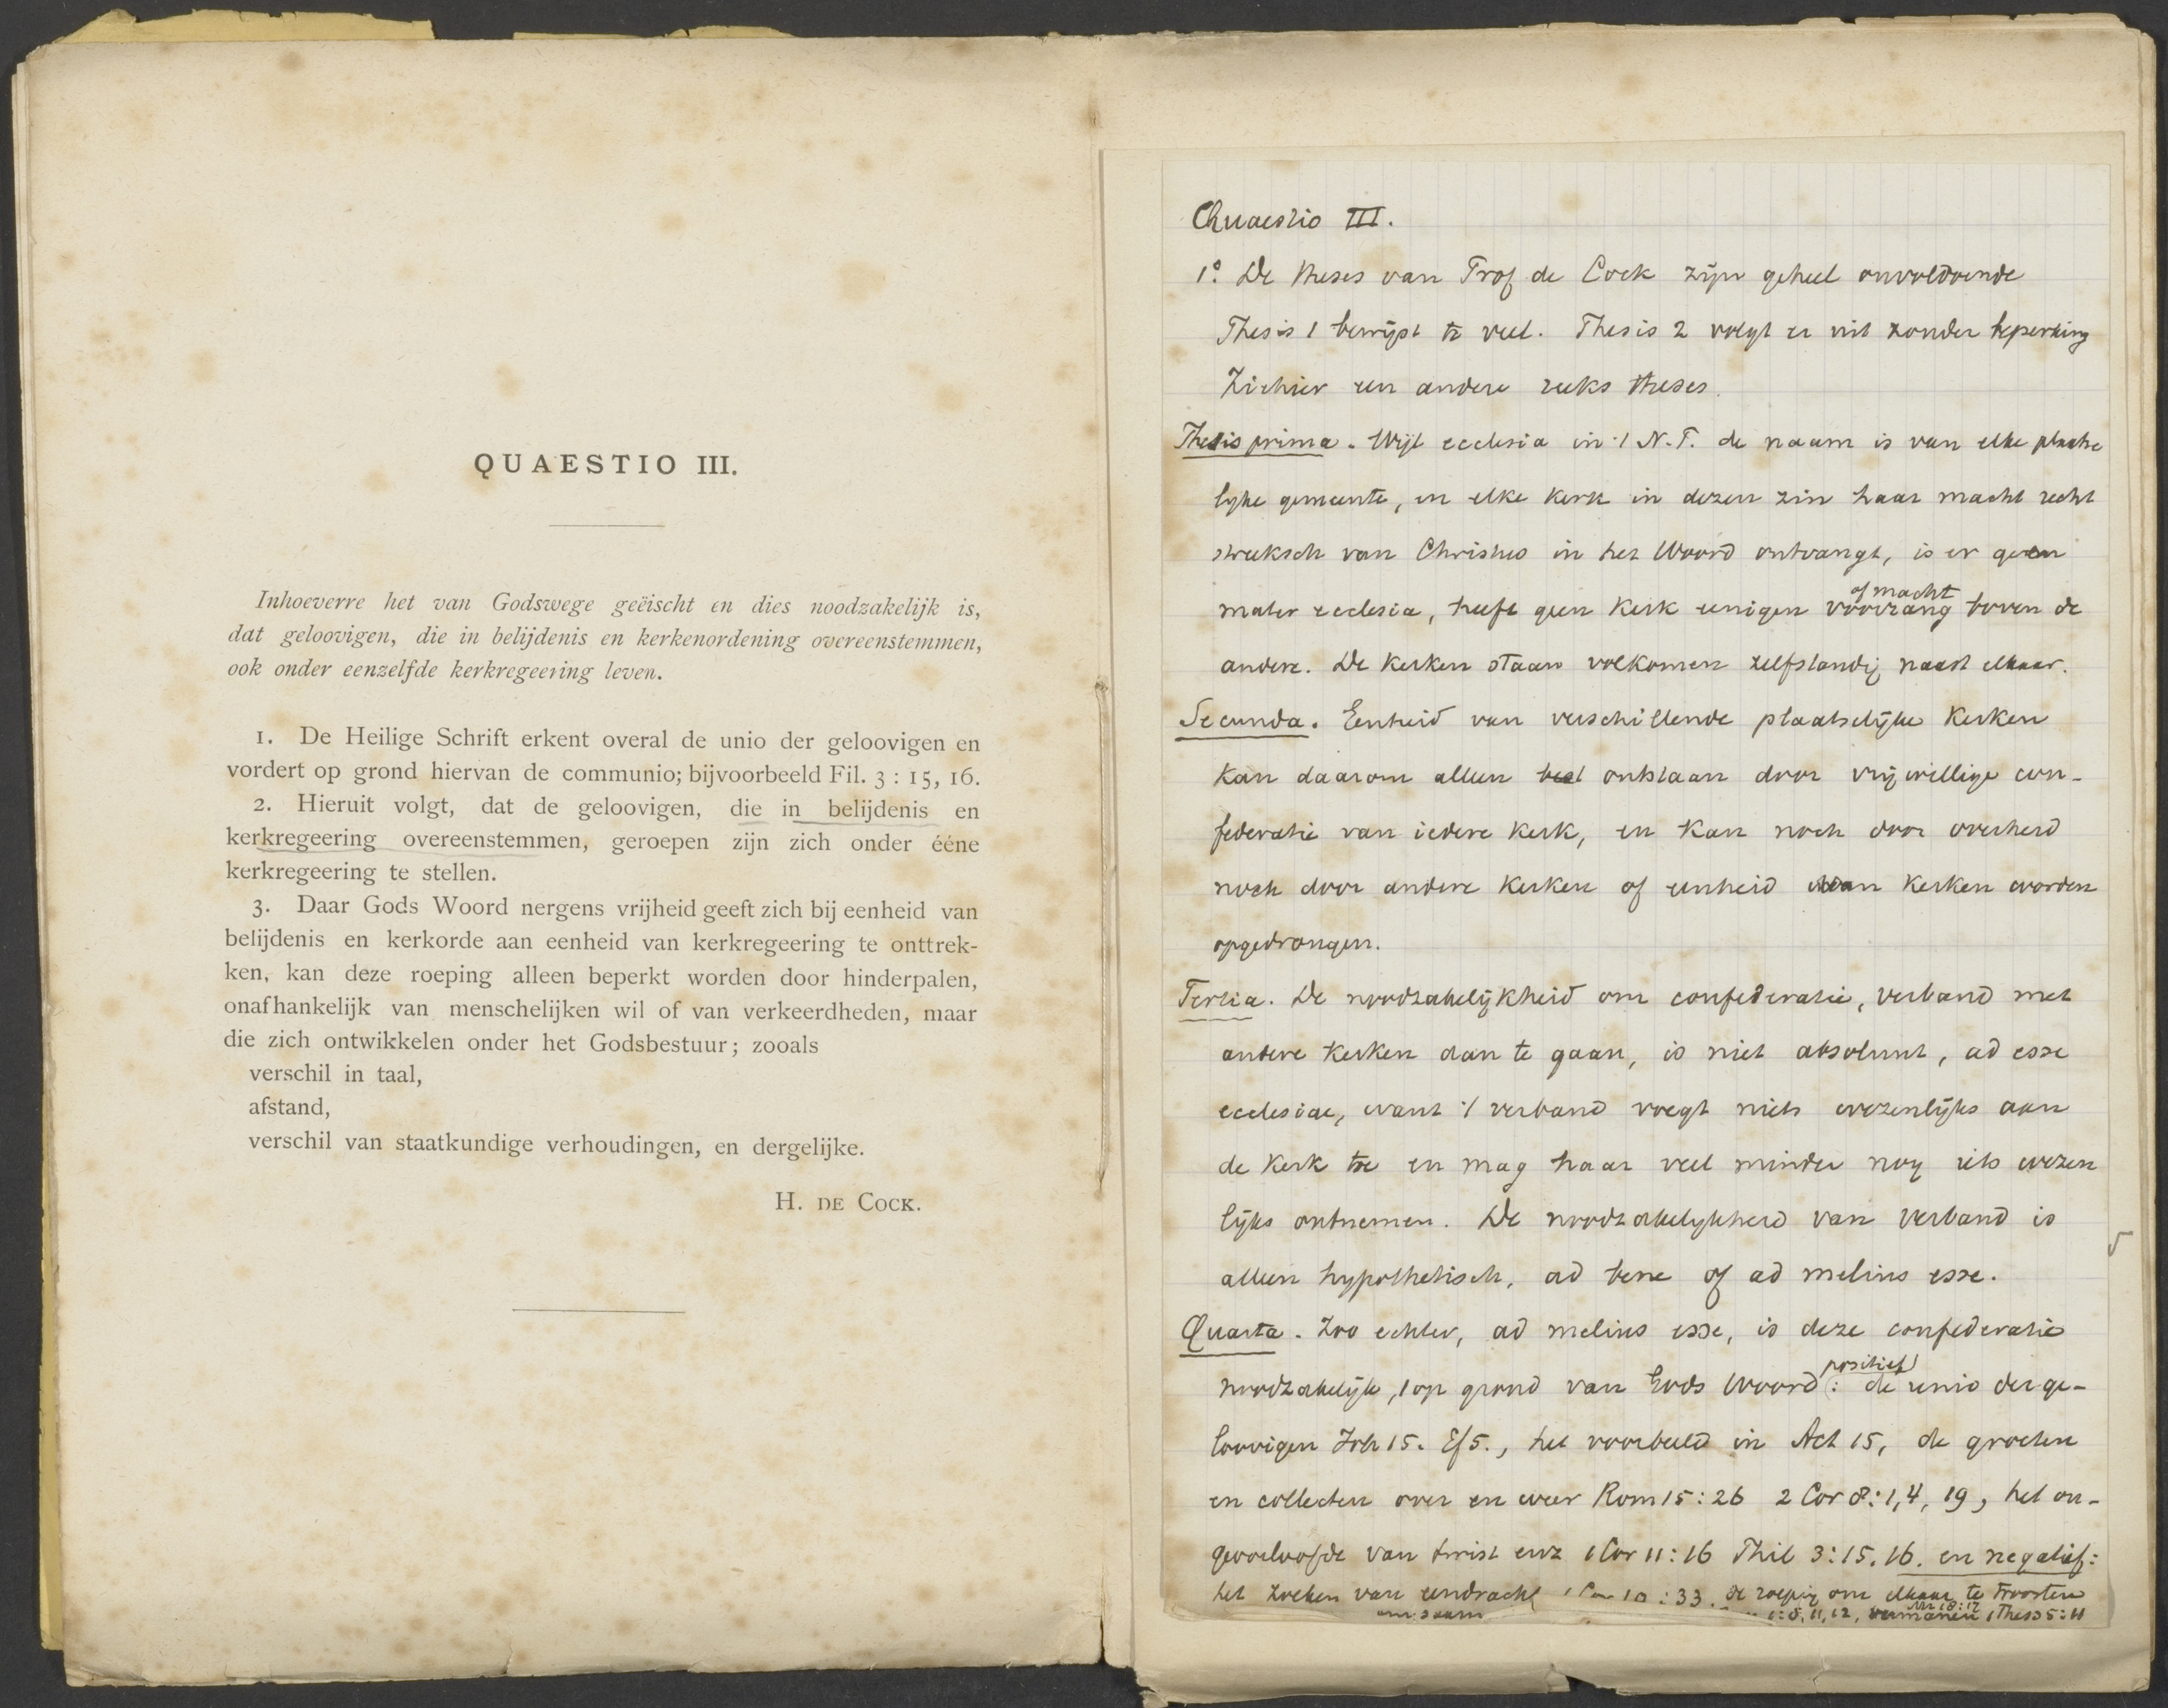 QUAESTIO III.
Inhoeverre het van Godswege geëischt en dies noodzakelijk is,
dat geloovigen, die in belijdenis en kerkenordening overeenstemmen,
ook onder eenzelfde kerkregeering leven.
1. De Heilige Schrift erkent overal de unio der geloovigen en
vordert op grond hiervan de communio; bijvoorbeeld Fil. 3 : 15, 16.
2. Hieruit volgt, dat de geloovigen, die in belijdenis en
kerkregeering overeenstemmen, geroepen zijn zich onder ééne
kerkregeering te stellen.
3. Daar Gods Woord nergens vrijheid geeft zich bij eenheid van
belijdenis en kerkorde aan eenheid van kerkregeering te onttrek-
ken, kan deze roeping alleen beperkt worden door hinderpalen,
onafhankelijk van menschelijken wil of van verkeerdheden, maar
die zich ontwikkelen onder het Godsbestuur; zooals
verschil in taal,
afstand,
verschil van staatkundige verhoudingen, en dergelijke.
H. DE COCK.
Quaestio III.
1° De theses van Prof de Cock zijn geheel onvoldoende
Thesis 1 bewijst te veel. Thesis 2 volgt er uit zonder beperking
Ziehier een andere reeks theses.
Thesis prima. Wijl ecclesia in 't N.T. de naam is van elke plaatse
lijke gemeente, en elke kerk in dezen zin haar macht recht
streeksch van Christus in het Woord ontvangt, is er geen
mater ecclesia, heeft geen kerk eenigen voorrang of macht boven de
andere. De kerken staan volkomen zelfstandig naast elkaar.
Secunda. Eenheid van verschillende plaatselijke kerken
kan daarom alleen ontstaan door vrijwillige con-
federatie van iedere kerk, en kan noch door overheid
noch door andere kerken of eenheid van kerken worden
opgedrongen.
Tertia. De noodzakelijkheid om confederatie, verband met
andere kerken aan te gaan, is niet absoluut, ad esse
ecclesiae, want 't verband voegt niets wezenlijks aan
de kerk toe en mag haar veel minder nog iets wezen
lijks ontnemen. De noodzakelijkheid van verband is
alleen hypothetisch, ad bene of ad melius esse.
Quarta. Zoo echter, ad melius esse, is deze confederatie
noodzakelijk, op grond van Gods Woord: positief de unio der ge-
loovigen Joh 15. Ef 5., het voorbeeld in Act 15, de groeten
en collecten over en weer Rom 15:26 2 Cor 8:1,4, 19, het on-
geoorloofde van twist enz 1 Cor 11:16 Phil 3:15.16. en negatief:
het zoeken van eendracht 10:33. de roeping om elkaar te troosten
vermanen 1 Thess 5:11